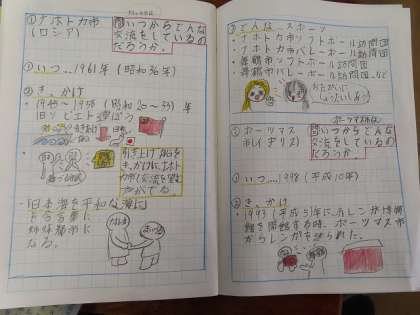 ①ナホトカ市
(ロシア)
問いつからどんな
交流をしているの
だろうか。
①いつ…1961年(昭和36年)
②き、かけ
・1945～1958(昭和20～33)年
旧ソビエト連ぽう
引き上げ船を
日本海を平和な海に
を合言葉に
姉妹都市に
なる。
③どんな…スポーツ
・ナホトカ市ソフトボール訪問団
・ナホトカ市バレーボール訪問団
・舞鶴市ソフトボール訪問団
・舞鶴市バレーボール訪問団など
ポーツマス市
②ポーツマス
市(イギリス)
問いつからどんな
交流をしているの
だろうか。
①いつ…1998(平成10年)
②き、かけ
・1993(平成5)年に赤レンガ博物
館を開館する時、ポーツマス市
からレンガを